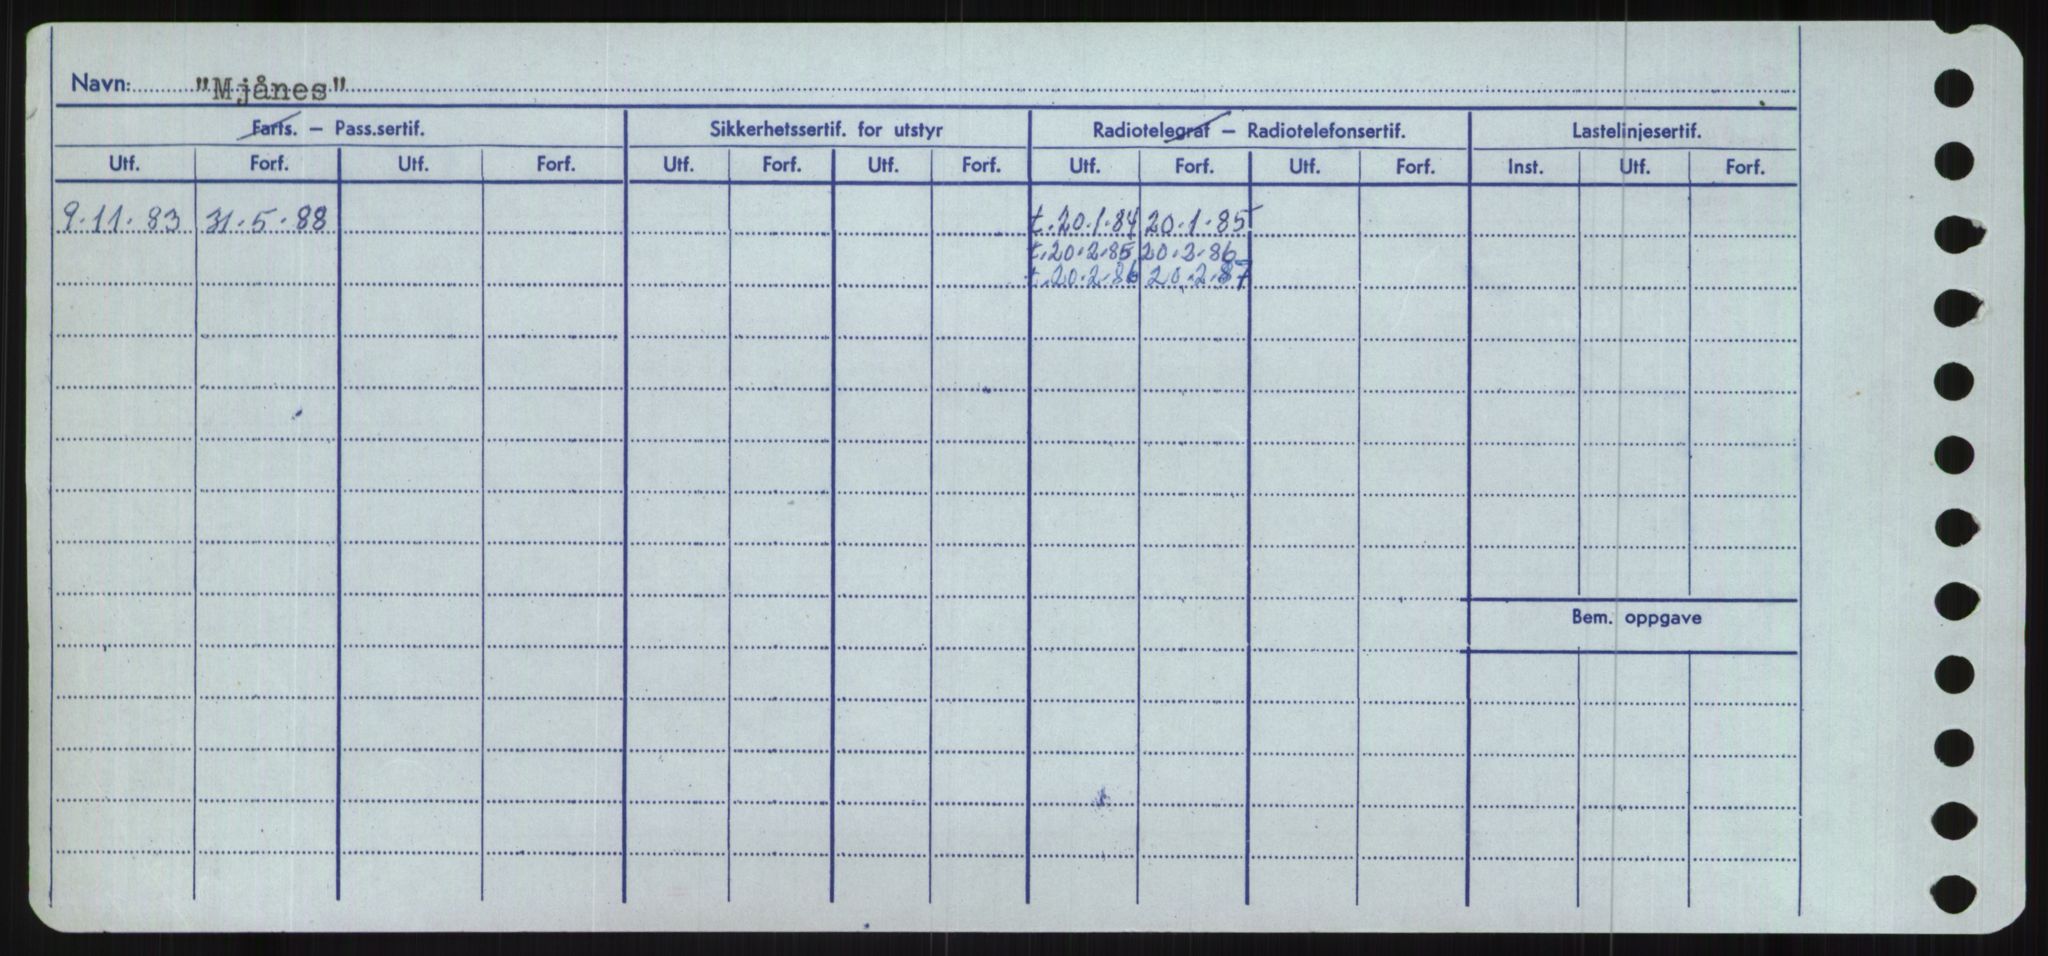 Navn: "Mjånes"
Farts. – Pass.sertif. Sikkerhetssertif. for utstyr Radiotelegraf – Radiotelefonsertif. Lastelinjesertif.
Utf. Forf. Utf. Forf. Utf. Forf. Utf. Forf. Utf. Forf. Utf. Forf. Inst. Utf. Forf.
9.11.83 31.5.88 t.20.1.84 20.1.85
t.20.2.85 20.2.86
t.20.2.86 20.2.87
Bem. oppgave